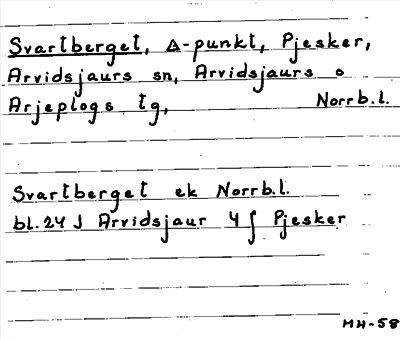 Svartberget, △-punkt, Pjesker,
Arvidsjaurs sn, Arvidsjaurs o
Arjeplogs tg, Norrb.l.
Svartberget ek Norrb.l.
bl. 24 J Arvidsjaur 4 f Pjesker
MH-58